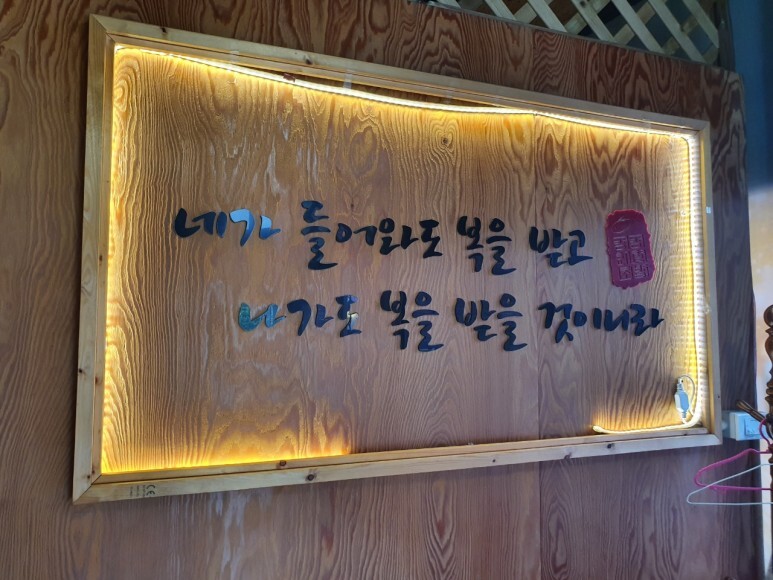 네가 들어와도 복을 받고
나가도 복을 받을 것이니라